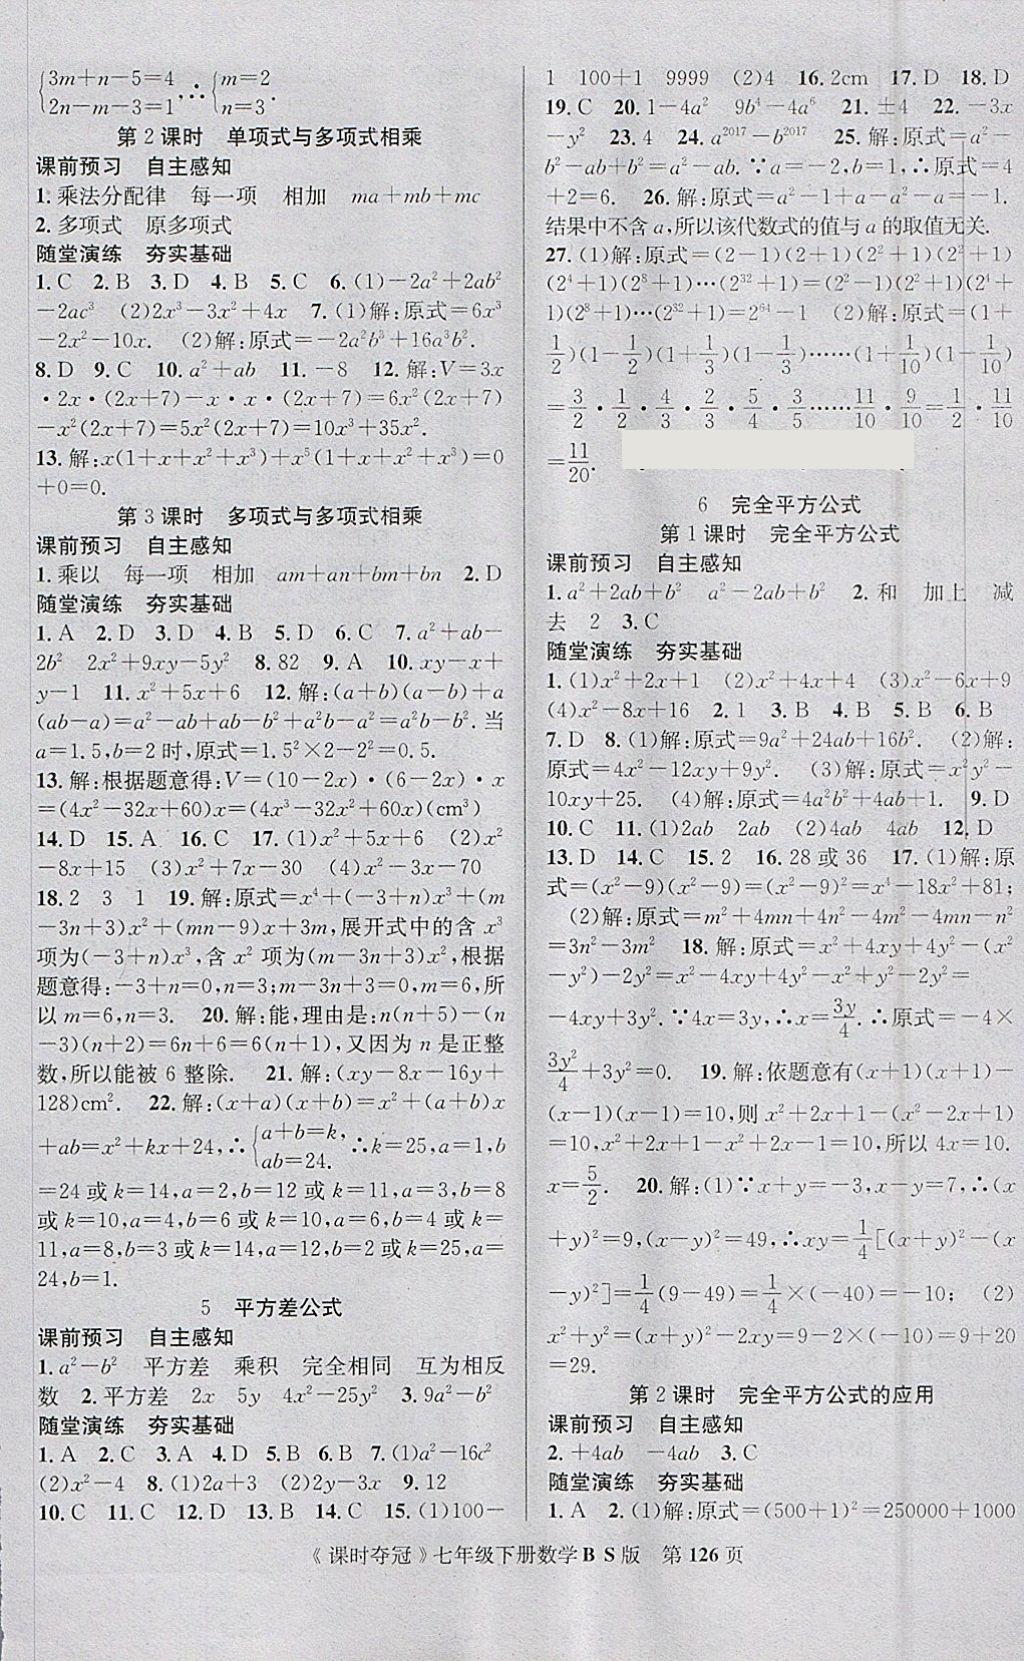 {3m+n-5=4
2n-m-3=1,∴{m=2
n=3.
第 2 课时 单项式与多项式相乘
课前预习 自主感知
1.乘法分配律 每一项 相加 ma+mb+mc
2.多项式 原多项式
随堂演练 夯实基础
1.C 2.B 3.D 4.B 5.C 6.(1)-2a²+2ab²
-2ac³ (2)2x³-3x²+4x 7.(1)解:原式=6x³
-2x²-10x. (2)解:原式=-2a²b³+16a³b².
8.D 9.C 10.a²+ab 11.-8 12.解:V=3x
·2x·(2x+7)-x·x·(2x+7)=6x²(2x+7)
-x²(2x+7)=5x²(2x+7)=10x³+35x².
13.解:x(1+x+x²+x³)+x⁵(1+x+x²+x³)=0
+0=0.
第 3 课时 多项式与多项式相乘
课前预习 自主感知
1.乘以 每一项 相加 am+an+bm+bn 2.D
随堂演练 夯实基础
1.A 2.D 3.D 4.B 5.D 6.C 7.a²+ab-
2b² 2x²+9xy-5y² 8.82 9.A 10.xy-x+
y-1 11.x²+5x+6 12.解:(a+b)(a-b)+a
(ab-a)=a²-ab+ab-b²+a²b-a²=a²b-b².当
a=1.5,b=2 时,原式=1.5²×2-2²=0.5.
13.解:根据题意得:V=(10-2x)·(6-2x)·x
=(4x²-32x+60)x=(4x³-32x²+60x)(cm³)
14.D 15.A 16.C 17.(1)x²+5x+6 (2)x²
-8x+15 (3)x²+7x-30 (4)x²-3x-70
18.2 3 1 19.解:原式=x⁴+(-3+n)x³+(m
-3n+3)x²+(mn-9)x+3m,展开式中的含 x³
项为(-3+n)x³,含 x² 项为(m-3n+3)x²,根据
题意得:-3+n=0,n=3;m-3n+3=0,m=6,所
以 m=6,n=3. 20.解:能,理由是:n(n+5)-(n
-3)(n+2)=6n+6=6(n+1),又因为 n 是正整
数,所以能被 6 整除. 21.解:(xy-8x-16y+
128)cm². 22.解:(x+a)(x+b)=x²+(a+b)x
+ab=x²+kx+24,∴{a+b=k,
ab=24. ∴k=25,a=1,b
=24或 k=14,a=2,b=12或 k=11,a=3,b=8
或 k=10,a=4,b=6或 k=10,a=6,b=4或 k=
11,a=8,b=3或 k=14,a=12,b=2或 k=25,a=
24,b=1.
5 平方差公式
课前预习 自主感知
1.a²-b² 平方差 乘积 完全相同 互为相反
数 2.平方差 2x 5y 4x²-25y² 3.9a²-b²
随堂演练 夯实基础
1.A 2.C 3.A 4.D 5.B 6.B 7.(1)a²-16c²
(2)x²-4 8.(1)2a+3 (2)2x-3y 9.12
10.C 11.C 12.D 13.B 14.C 15.(1)100-
1 100+1 9999 (2)4 16.2cm 17.D 18.D
19.C 20.1-4a² 9b⁴-4a⁶ 21.±4 22.-3x
-y² 23.4 24.a²⁰¹⁷-b²⁰¹⁷ 25.解:原式=a²-
b²-ab+b²=a²-ab.∵a=-2,b=1,∴原式=4
+2=6. 26.解:原式=a²-1+a-a²-a=-1.
结果中不含 a,所以该代数式的值与 a 的取值无关.
27.(1)解:原式=(2-1)(2+1)(2²+1)(2²+1)
(2⁴+1)(2⁸+1)…(2³²+1)=(2²-1)(2²+1)(2⁴+
1)(2⁸+1)…(2³²+1)=2⁶⁴-1 (2)解:原式=(1+
1/2)(1-1/2)(1+1/3)(1-1/3)……(1+1/10)(1-1/10)
=3/2·1/2·4/3·2/3·5/4·3/5……11/10·9/10=1/2·11/10
=11/20.
6 完全平方公式
第 1 课时 完全平方公式
课前预习 自主感知
1.a²+2ab+b² a²-2ab+b² 2.和 加上 减
去 2 3.C
随堂演练 夯实基础
1.(1)x²+2x+1 (2)x²+4x+4 (3)x²-6x+9
(4)x²-8x+16 2.1 3.B 4.B 5.B 6.B
7.D 8.(1)解:原式=9a²+24ab+16b². (2)解:
原式=4x²-12xy+9y². (3)解:原式=x²y²-
10xy+25. (4)解:原式=4a²b²+4ab+1. 9.D
10.C 11.(1)2ab 2ab (2)4ab 4ab 12.D
13.D 14.C 15.2 16.28 或 36 17.(1)解:原
式=(x²-9)(x²-9)=(x²-9)²=x⁴-18x²+81;
(2)解:原式=m²+4mn+4n²-4m²-4mn-n²
=3n²-3m² 18.解:原式=x²+4xy+4y²-(x²
-y²)-2y²=x²+4xy+4y²-x²+y²-2y²=
-4xy+3y².∵4x=3y,∴x=3y/4.∴原式=-4×
3y²/4+3y²=0. 19.解:依题意有(x+1)(x+1)-
(x-1)(x-1)=10,则 x²+2x+1-(x²-2x+1)
=10,x²+2x+1-x²+2x-1=10,所以 4x=10.
x=5/2. 20.解:(1)∵x+y=-3,x-y=7,∴(x
+y)²=9,(x-y)²=49,∴xy=1/4[(x+y)²-(x
-y)²]=1/4(9-49)=1/4×(-40)=-10; (2)
x²+y²=(x+y)²-2xy=9-2×(-10)=9+20
=29.
第 2 课时 完全平方公式的应用
课前预习 自主感知
2.+4ab -4ab 3.C
随堂演练 夯实基础
1.A 2.(1)解:原式=(500+1)²=250000+1000
《课时夺冠》七年级下册数学 B S 版 第 126 页